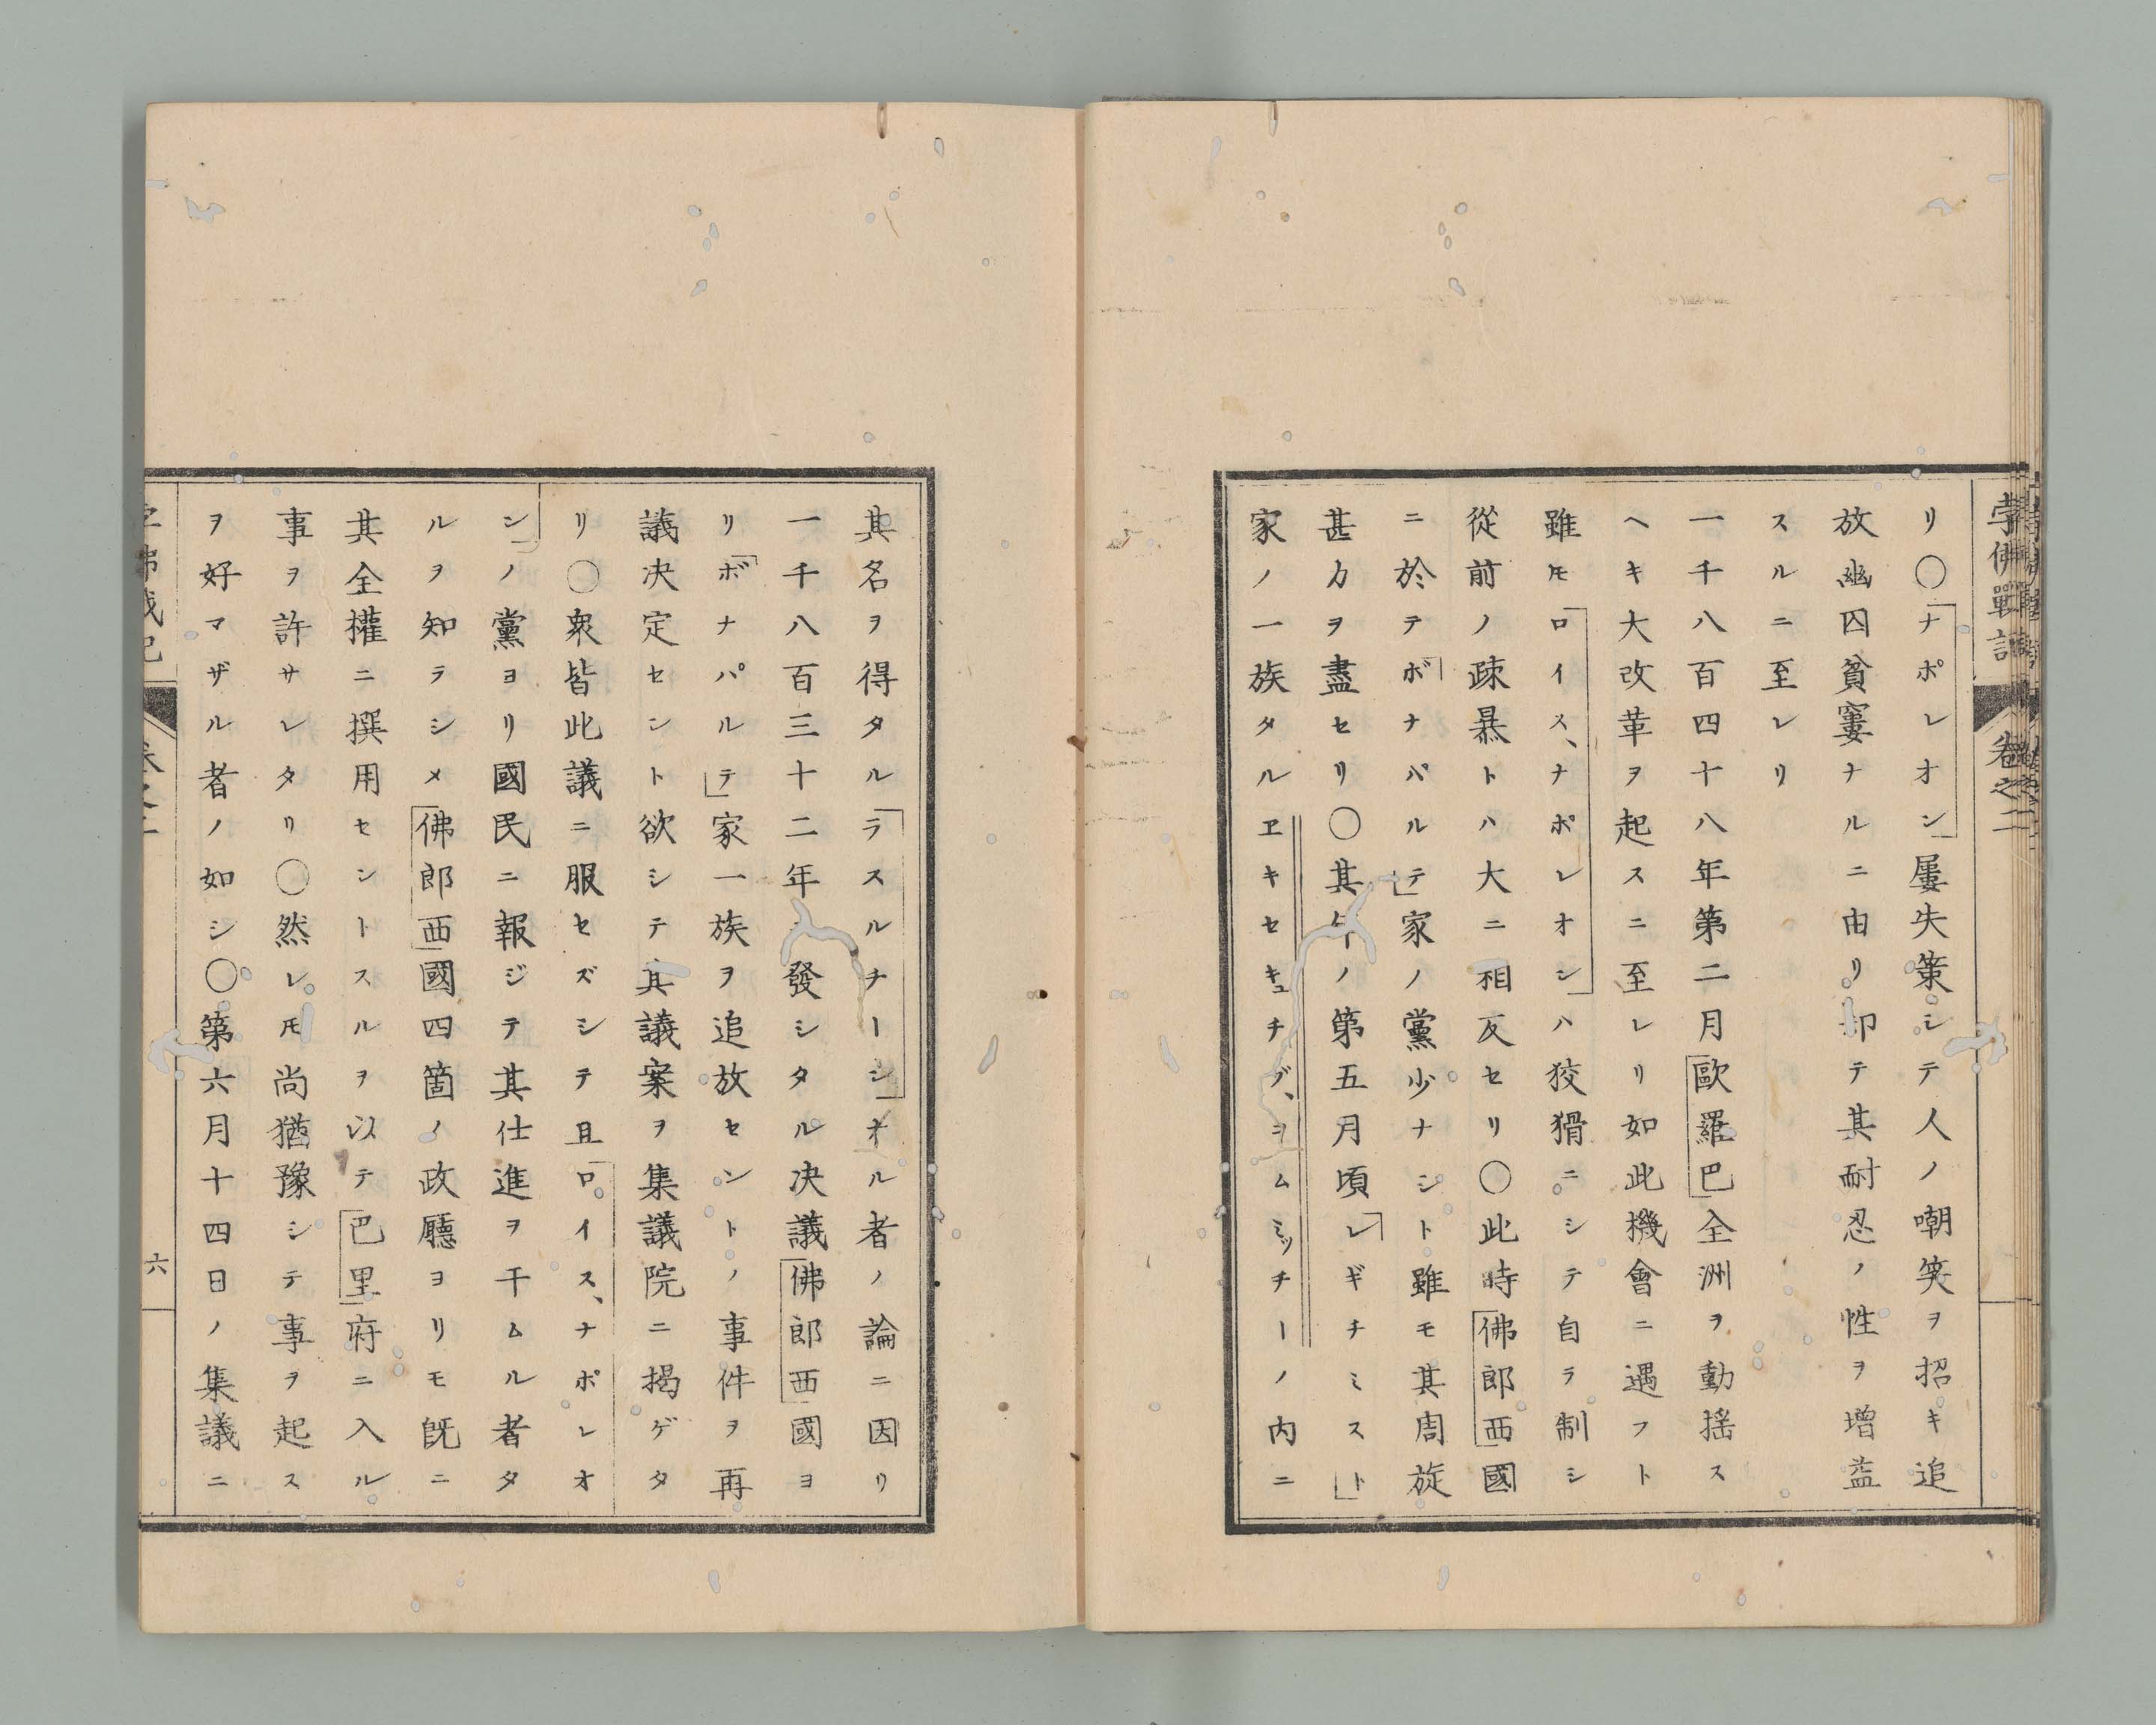 孛佛戰記 卷之二
リ〇「ナポレオン」屢失策シテ人ノ嘲笑ヲ招キ追
放幽囚貧窶ナルニ由リ却テ其耐忍ノ性ヲ增益
スルニ至レリ
一千八百四十八年第二月「歐羅巴」全洲ヲ動揺ス
ヘキ大改革ヲ起スニ至レリ如此機會ニ遇フト
雖モ「ロイス、ナポレオン」ハ狡猾ニシテ自ラ制シ
從前ノ疎暴トハ大ニ相反セリ〇此時「佛郎西」國
ニ於テ「ボナパルテ」家ノ黨少ナシト雖モ其周旋
甚力ヲ盡セリ〇其年ノ第五月頃「レギチミスト」
家ノ一族タルヱキセキュチヴ、ヲムミッチーノ内ニ
其名ヲ得タル「ラスルナーシ」ナル者ノ論ニ因リ
一千八百三十二年發シタル决議「佛郎西」國ヨ
リ「ボナパルテ」家一族ヲ追放セントノ事件ヲ再
議决定セント欲シテ其議案ヲ集議院ニ揭ゲタ
リ〇衆皆此議ニ服セズシテ且「ロイス、ナポレオ
ン」ノ黨ヨリ國民ニ報ジテ其仕進ヲ干ムル者タ
ルヲ知ラシメ「佛郎西」國四箇ノ政廳ヨリモ既ニ
其全權ニ撰用セントスルヲ以テ「巴里」府ニ入ル
事ヲ許サレタリ〇然レ𪜈尚猶豫シテ事ヲ起ス
ヲ好マザル者ノ如シ〇第六月十四日ノ集議ニ
孛佛戰記 卷之二 六